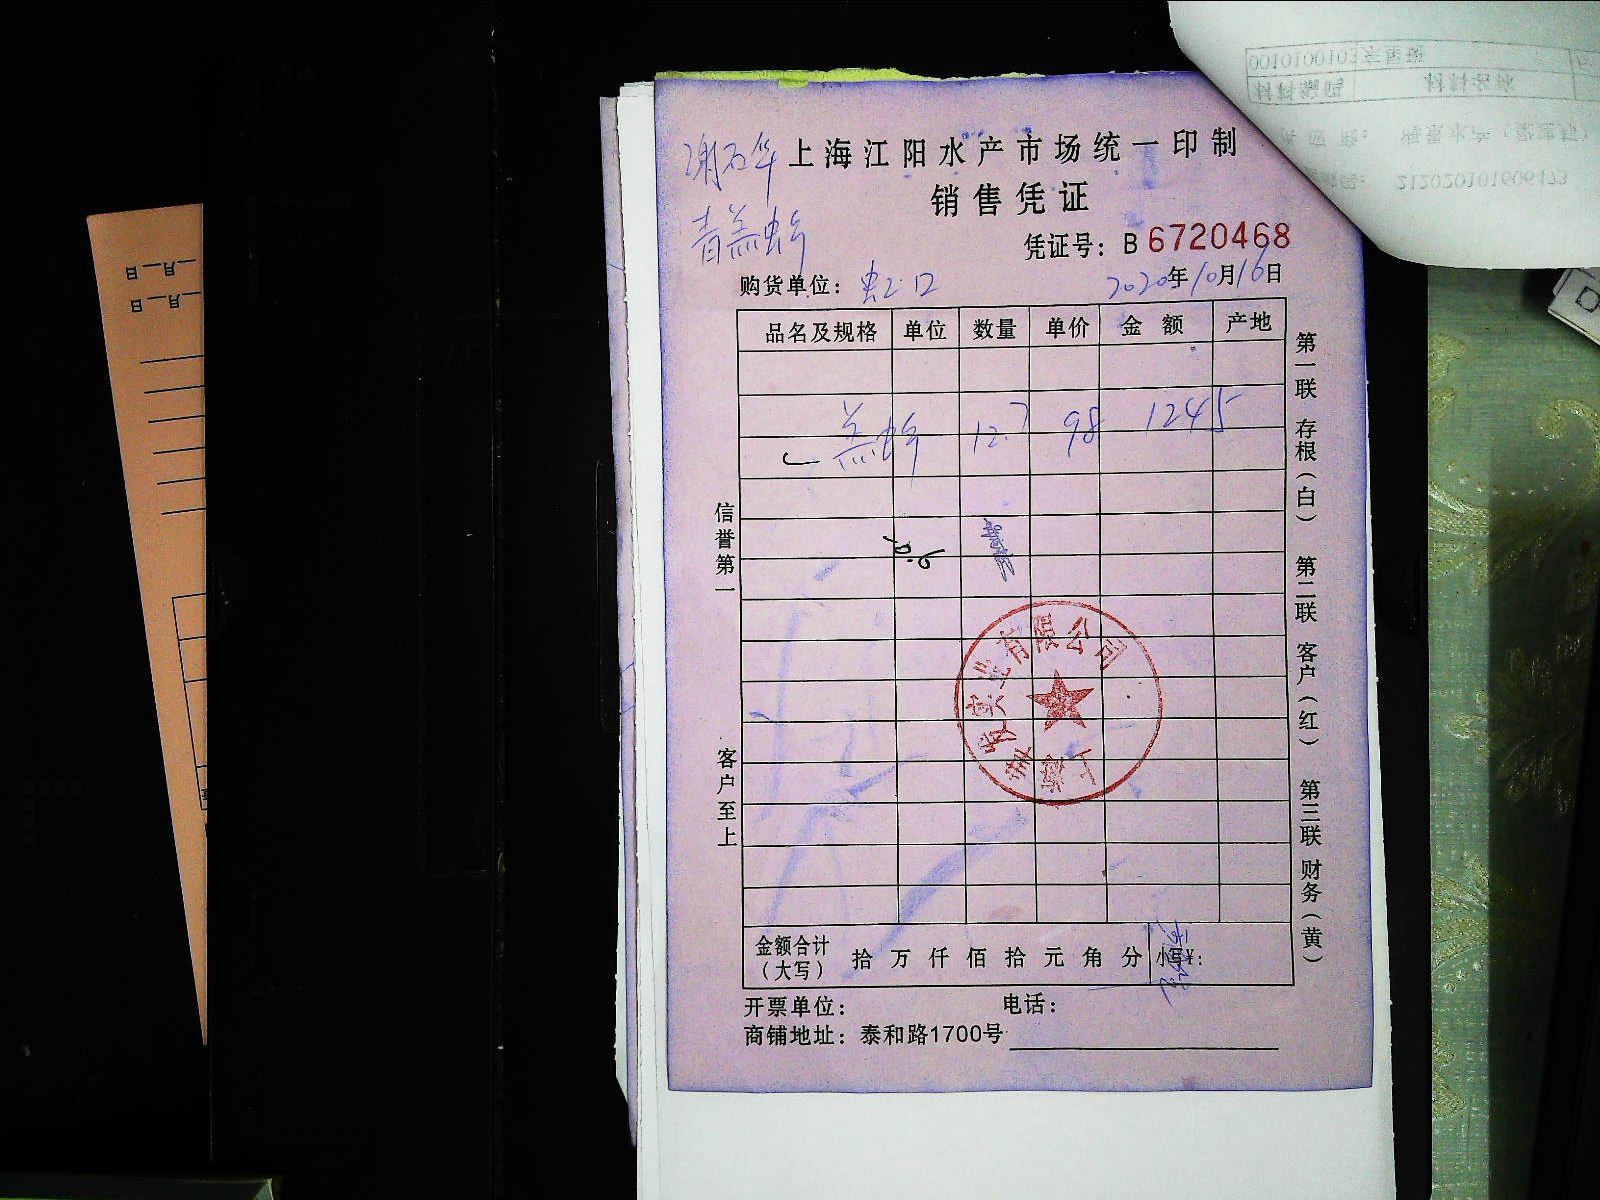 谢石华
上海江阳水产市场统一印制
销售凭证
青羔蚧
凭证号：B 6720468
购货单位：虹口 2020年10月16日
品名及规格 单位 数量 单价 金额 产地
羔蚧 12.7 98 1245
信誉第一
客户至上
有限公司
第一联 存根（白） 第二联 客户（红） 第三联 财务（黄）
金额合计（大写） 拾 万 仟 佰 拾 元 角 分 小写¥：
开票单位： 电话：
商铺地址：泰和路1700号